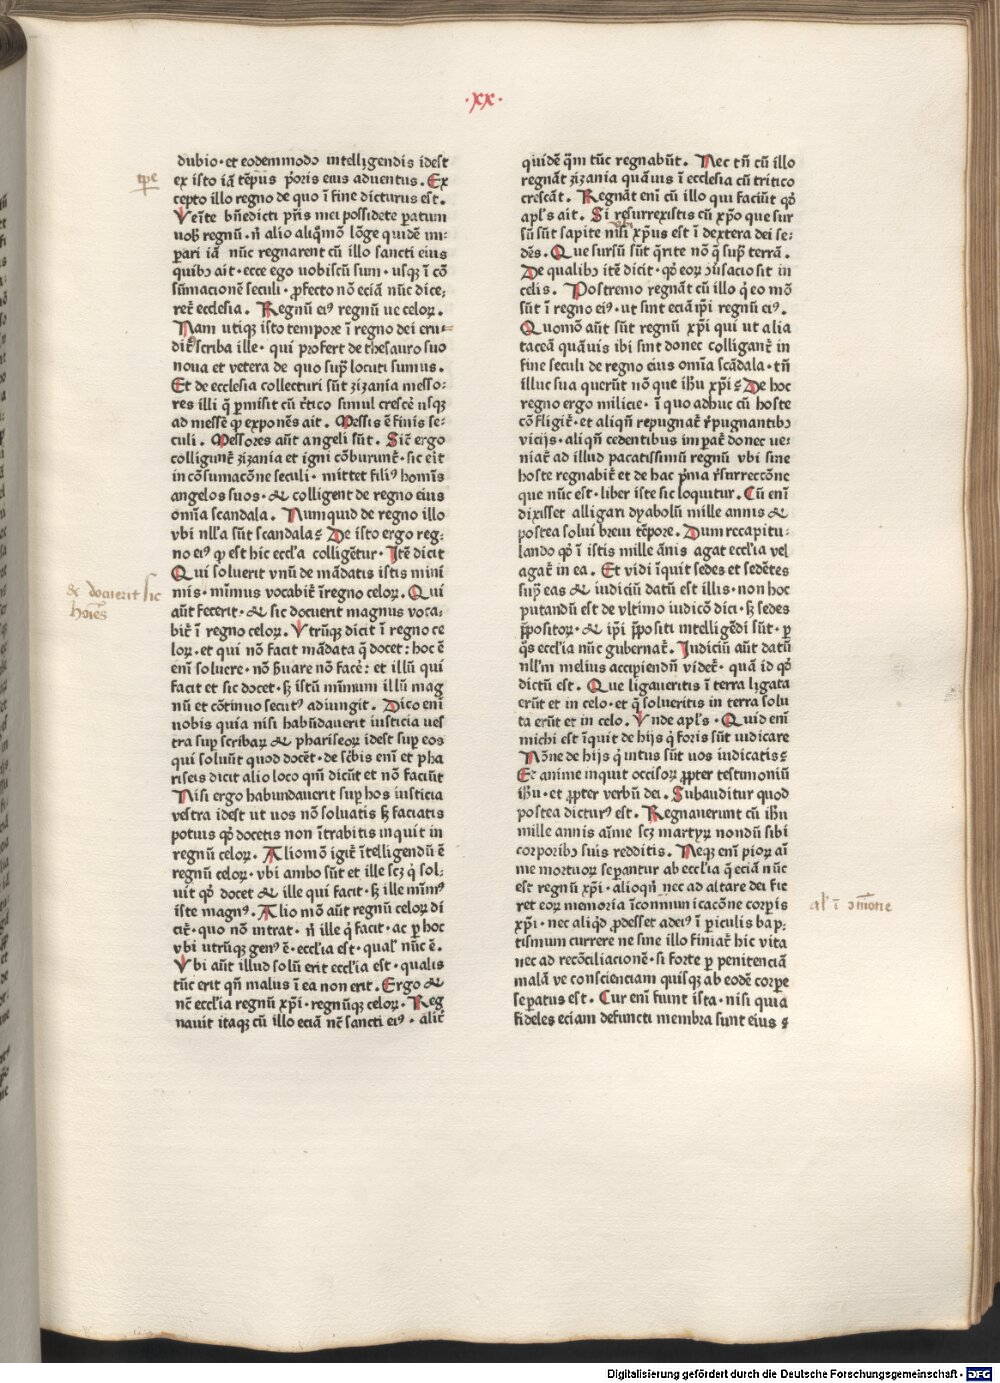 ·xx·
dubio·et eodemmodo intelligendis idest
ex isto iā tēpus p̄oris eius aduentus. Ex
cepto illo regno de quo ī fine dicturus est.
Veīte bn̄edicti pr̄is mei possidete paratum
uob regnū·n̄ alio aliq̄mō lōge quidē im-
pari iā nūc regnarent cū illo sancti eius
quibꝰ ait·ecce ego uobiscū sum·usqꝫ ī cō
sūmacionē seculi·ꝓfecto nō eciā nūc dice,
ret̄ ecclesia. Regnū eiꝰ regnū ue celoꝝ.
Nam utiqꝫ isto tempore ī regno dei eru-
dit̄ scriba ille·qui profert de thesauro suo
noua et vetera de quo sup̄ locuti sumus.
Et de ecclesia collecturi sūt zizania messo:
res illi q̄ ꝑmisit cū t̄tico simul cresce᷑ usqꝫ
ad messē ꝙ exponēs ait. Messis ē finis se-
culi. Messores aūt angeli sūt. Sic̄ ergo
colligunt̄ zizania et igni cōburunt̄·sic eīt
in cōsumacōne seculi·mittet filiꝰ homīs
angelos suos·& colligent de regno eius
om̄ia scandala. Numquid de regno illo
vbi nll'a sūt scandala⸮ De isto ergo reg-
no eiꝰ ꝙ est hic eccl'a colligētur·Itē dicit
Qui soluerit vnū de mādatis istis mini
mis·minimus vocabit̄ īregno celoꝝ. Qui
aūt fecerit·& sic docuerit magnus voca-
bit̄ ī regno celoꝝ. Vtrūqꝫ dicit ī regno ce
loꝝ·et qui nō facit mādata q̄ docet: hoc ē
enī soluere·nō ẜuare nō face᷑: et illū qui
facit et sic docet·ẜꝫ istū minimum illū mag
nū et cōtinuo secutꝰ adiungit. Dico enī
nobis quia nisi habūdauerit iusticia ues
tra suꝑ scribaꝝ & phariseoꝝ idest suꝑ eos
qui soluūt quod docēt·de sc̄bis enī et pha
riseis dicit alio loco qm̄ dicūt et nō faciūt
Nisi ergo habundauerit suꝑ hos iusticia
vestra idest ut uos nō soluatis ẜꝫ faciatis
potius qꝰ docetis non ītrabitis inquit in
regnū celoꝝ. Aliomō igit̄ ītelligendū ē
regnū celoꝝ·vbi ambo sūt et ille scꝫ q̇ sol,
uit qꝰ docet & ille qui facit·ẜꝫ ille mīmꝰ
iste magnꝰ. Alio mō aūt regnū celoꝝ di
cit̄·quo nō intrat·n̄ ille q̇ facit·ac ꝑ hoc
vbi utrūqꝫ genꝰ ē·eccl'ia est·qual' nūc ē.
Vbi aūt illud solū erit eccl'ia est·qualis
tūc erit qn̄ malus ī ea non erit. Ergo &
nc̄ eccl'ia regnū xp̄i·regnūqꝫ celoꝝ·Reg
nauit itaqꝫ cū illo eciā nc̄ sancti eiꝰ·alit̄
quidē q̄m tūc regnabūt. Nec tn̄ cū illo
regnāt zizania quāuis ī ecclesia cū tritico
crescāt. Regnāt enī cū illo qui faciūt qꝰ
apl's ait. Si resurrexistis cū xp̄o que sur
sū sūt sapite ubi xp̄us est ī dextera dei se-
dēs. Que sursū sūt q̄rite nō q̄ suꝑ terrā.
De qualibꝰ itē dicit·qꝰ eoꝝ ꝯuersacio sit in
celis. Postremo regnāt cū illo q̇ eo mō
sūt ī regno eiꝰ·ut sint eciā ip̄i regnū eiꝰ.
Quomō aūt sūt regnū xp̄i qui ut alia
taceā quāuis ibi sint donec colligant̄ in
fine seculi de regno eius om̄ia scādala·tn̄
illuc sua querūt nō que ih̄u xp̄i⸮ De hoc
regno ergo milicie·ī quo adhuc cū hoste
cō fligit̄·et aliqn̄ repugnat̄ r̄pugnantibꝰ
vicijs·aliqn̄ cedentibus impat̄ donec ue-
niat̄ ad illud pacatissimū regnū vbi sine
hoste regnabit̄ et de hac p̄ma r̄surreccōne
que nūc est·liber iste sic loquitur. Cū enī
dixisset alligari dyabolū mille annis &
postea solui breui tēpore. Dum recapitu-
lando qꝰ ī istis mille ānis agat eccl'ia vel
agat̄ in ea. Et vidi īquit sedes et sedētes
suꝑ eas & iudiciū datū est illis·non hoc
putandū est de vltimo iudicō dici·ẜꝫ sedes
p̄positoꝝ·& ip̄i p̄positi intelligēdi sūt·ꝑ
q̄s eccl'ia nūc gubernat̄. Iudiciū aūt datū
nll'm melius accipiendū videt̄·quā id qꝰ
dictū est. Que ligaueritis ī terra ligata
erūt et in celo·et q̄ solueritis in terra solu
ta erūt et in celo. Vnde apl's·Quid enī
michi est īquit de hijs q̇ foris sūt iudicare
Nōne de hijs q̇ intus sūt uos iudicatis⸮
Et anime inquit occisoꝝ ꝓpter testimoniū
ih̄u·et ꝓpter verbū dei. Subauditur quod
postea dicturꝰ est. Regnauerunt cū ih̄u
mille annis aīme scꝫ martyꝝ nondū sibi
corporibꝰ suis redditis. Neqꝫ enī pioꝝ aī
me mortuoꝝ seꝑantur ab eccl'ia q̄ eciā nūc
est regnū xp̄i·alioqn̄ nec ad altare dei fie
ret eoꝝ memoria īcommunicacōne corꝑis
xp̄i·nec aliqd ꝓdesset adeiꝰ ī ꝑiculis bap,
tismum currere ne sine illo finiat̄ hic vita
nec ad recōciliacionē·si forte ꝑ penitenciā
malā ve conscienciam quisqꝫ ab eodē corꝑe
seꝑatus est. Cur enī fiunt ista·nisi quia
fideles eciam defuncti membra sunt eius⸮
tp̄e
& docuerit sic
hoīes
al' ī ꝯmōne
Digitalisierung gefördert durch die Deutsche Forschungsgemeinschaft - DFG